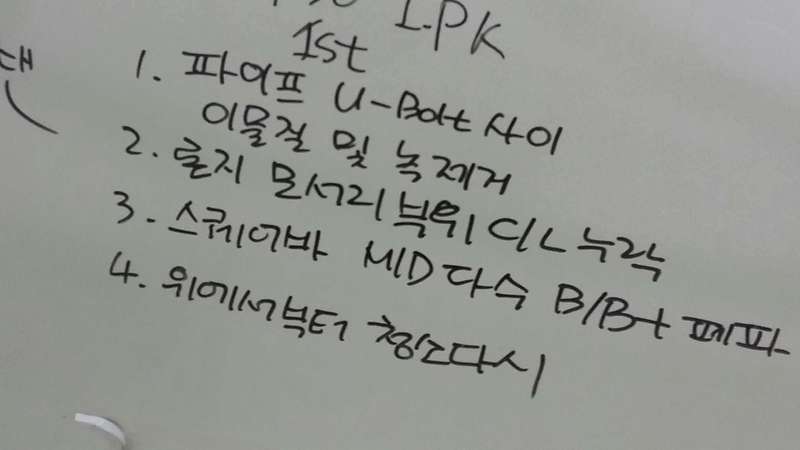 I.PK
1st
1. 파이프 U-Bolt 사이
이물질 및 녹제거
2. 론지 모서리부위 C/L 누락
3. 스퀘어바 MID 다수 B/B+ 페파
4. 위에서부터 청소다시